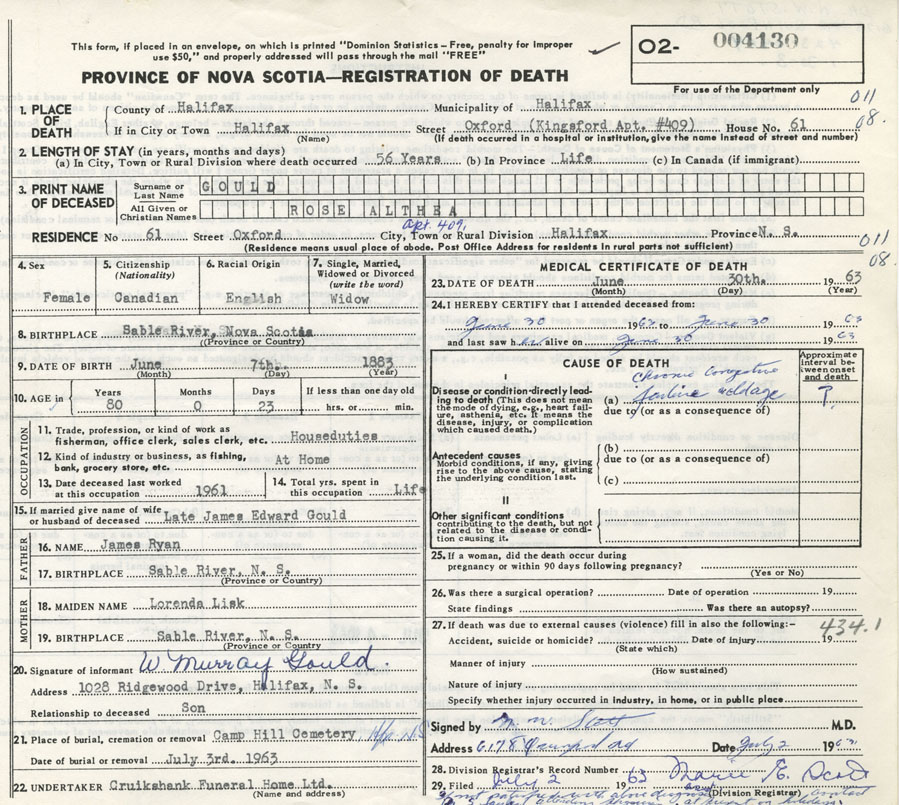 This form, if placed in an envelope, on which is printed "Dominion Statistics - Free, penalty for improper
use $50," and properly addressed will pass through the mail "FREE"
O2- 004130
PROVINCE OF NOVA SCOTIA—REGISTRATION OF DEATH
For use of the Department only
011
08.
1. PLACE OF DEATH
County of Halifax Municipality of Halifax
If in City or Town Halifax Street Oxford (Kingsford Apt. #409) House No. 61
(Name) (If death occurred in a hospital or institution, give the name instead of street and number)
2. LENGTH OF STAY (in years, months and days)
(a) In City, Town or Rural Division where death occurred 56 Years (b) In Province Life (c) In Canada (if immigrant)
3. PRINT NAME OF DECEASED
Surname or Last Name GOULD
All Given or Christian Names ROSE ALTHEA
Apt. 409.
RESIDENCE No 61 Street Oxford City, Town or Rural Division Halifax Province N. S.
(Residence means usual place of abode. Post Office Address for residents in rural parts not sufficient)
011
08.
4. Sex
Female
5. Citizenship
(Nationality)
Canadian
6. Racial Origin
English
7. Single, Married,
Widowed or Divorced
(write the word)
Widow
8. BIRTHPLACE Sable River, Nova Scotia
(Province or Country)
9. DATE OF BIRTH June 7th. 1883
(Month) (Day) (Year)
10. AGE in Years Months Days If less than one day old
80 0 23 hrs. or min.
OCCUPATION
11. Trade, profession, or kind of work as
fisherman, office clerk, sales clerk, etc. Houseduties
12. Kind of industry or business, as fishing,
bank, grocery store, etc. At Home
13. Date deceased last worked
at this occupation 1961
14. Total yrs. spent in
this occupation Life
15. If married give name of wife
or husband of deceased Late James Edward Gould
FATHER
16. NAME James Ryan
17. BIRTHPLACE Sable River, N. S.
(Province or Country)
MOTHER
18. MAIDEN NAME Lorenda Lisk
19. BIRTHPLACE Sable River, N. S.
(Province or Country)
20. Signature of informant W Murray Gould.
Address 1028 Ridgewood Drive, Halifax, N. S.
Relationship to deceased Son
21. Place of burial, cremation or removal Camp Hill Cemetery
Date of burial or removal July 3rd. 1963
22. UNDERTAKER Cruikshank Funeral Home Ltd.
(Name and address)
MEDICAL CERTIFICATE OF DEATH
23. DATE OF DEATH June 30th. 1963
(Month) (Day) (Year)
24. I HEREBY CERTIFY that I attended deceased from:
June 30 1963 to June 30 1963
and last saw her alive on June 30 1963
CAUSE OF DEATH
Approximate interval between onset and death
I
Disease or condition directly leading
to death (This does not mean
the mode of dying, e.g., heart failure,
asthenia, etc. It means the
disease, injury, or complication
which caused death.)
chronic congestive
(a) ?
due to (or as a consequence of)
Antecedent causes
Morbid conditions, if any, giving
rise to the above cause, stating
the underlying condition last.
(b)
due to (or as a consequence of)
(c)
II
Other significant conditions
contributing to the death, but not
related to the disease or condition
causing it.
25. If a woman, did the death occur during
pregnancy or within 90 days following pregnancy?
(Yes or No)
26. Was there a surgical operation? Date of operation 19
State findings Was there an autopsy?
27. If death was due to external causes (violence) fill in also the following:- 434.1
Accident, suicide or homicide? Date of injury 19
(State which)
Manner of injury
(How sustained)
Nature of injury
Specify whether injury occurred in industry, in home, or in public place
Signed by Scott M.D.
Address 6178 Date July 2 1963
28. Division Registrar's Record Number
29. Filed July 2 1963 Marie E. Scott
(Division Registrar)